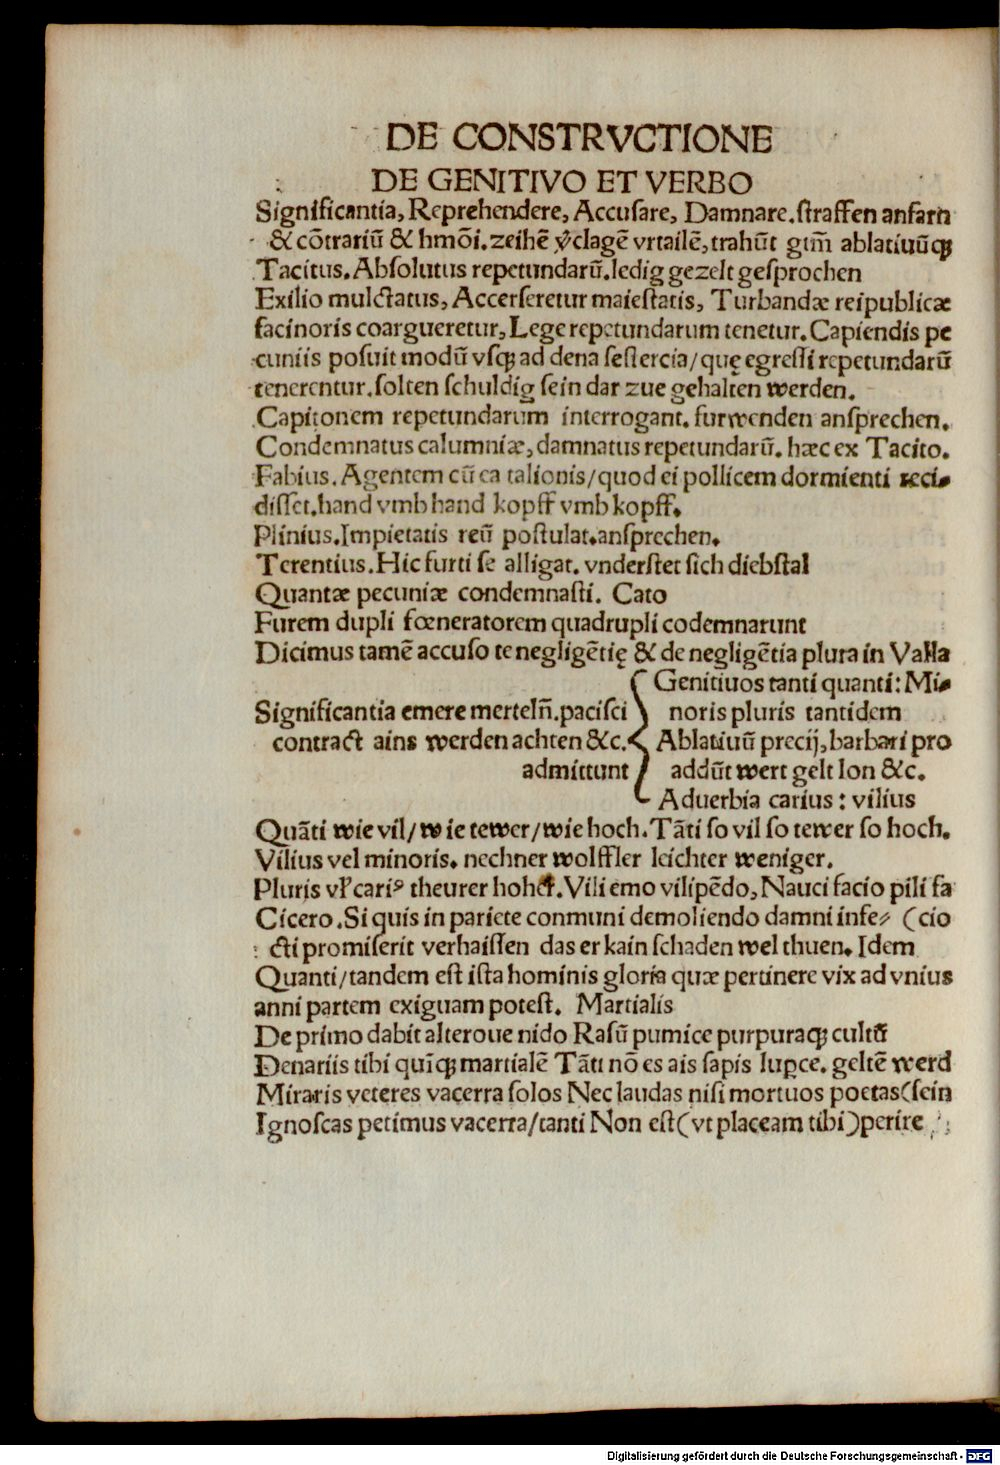 DE CONSTRVCTIONE
DE GENITIVO ET VERBO
Significantia, Reprehendere, Accusare, Damnare. straffen anfarn
& cõtrariũ & hmõi. zeihẽ v̓clagẽ vrtailẽ, trahũt gtm̃ ablatiuũq̢
Tacitus. Absolutus repetundarũ. ledig gezelt gesprochen
Exilio mulctatus, Accerseretur maiestatis, Turbandæ reipublicæ
facinoris coargueretur, Lege repetundarum tenetur. Capiendis pe
cuniis posuit modũ vsq̢ ad dena sestercia/ quę egressi repetundarũ
tenerentur. solten schuldig sein dar zue gehalten werden.
Capitonem repetundarum interrogant. furwenden ansprechen.
Condemnatus calumniæ, damnatus repetundarũ. hæc ex Tacito.
Fabius. Agentem cũ ea talionis/ quod ei pollicem dormienti reci-
disset. hand vmb hand kopff vmb kopff.
Plinius. Impietatis reũ postulat. ansprechen.
Terentius. Hic furti se alligat. vnderstet sich diebstal
Quantæ pecuniæ condemnasti. Cato
Furem dupli fœneratorem quadrupli codemnarunt
Dicimus tamẽ accuso te negligẽtię & de negligẽtia plura in Valla
Genitiuos tanti quanti: Mi-
Significantia emere merteln̄. pacisci noris pluris tantidem
contract ains werden achten &c. Ablatiuũ precij, barbari pro
admittunt addũt wert gelt lon &c.
Aduerbia carius: vilius
Quãti wie vil/ wie tewer/ wie hoch. Tãti so vil so tewer so hoch.
Vilius vel minoris. nechner wolffler leichter weniger.
Pluris vl̓ cariꝰ theurer hoher. Vili emo vilipẽdo, Nauci facio pili fa
Cicero. Si quis in pariete conmuni demoliendo damni infe⸗ (cio
cti promiserit verhaissen das er kain schaden wel thuen. Idem
Quanti/ tandem est ista hominis gloria quæ pertinere vix ad vnius
anni partem exiguam potest. Martialis
De primo dabit alteroue nido Rasũ pumice purpuraq̢ cultũ
Denariis tibi quĩq̢ martialẽ Tãti nõ es ais sapis luꝑce. geltẽ werd
Miraris veteres vacerra solos Nec laudas nisi mortuos poetas (sein
Ignoscas petimus vacerra/ tanti Non est (vt placeam tibi) perire
Digitalisierung gefördert durch die Deutsche Forschungsgemeinschaft - DFG